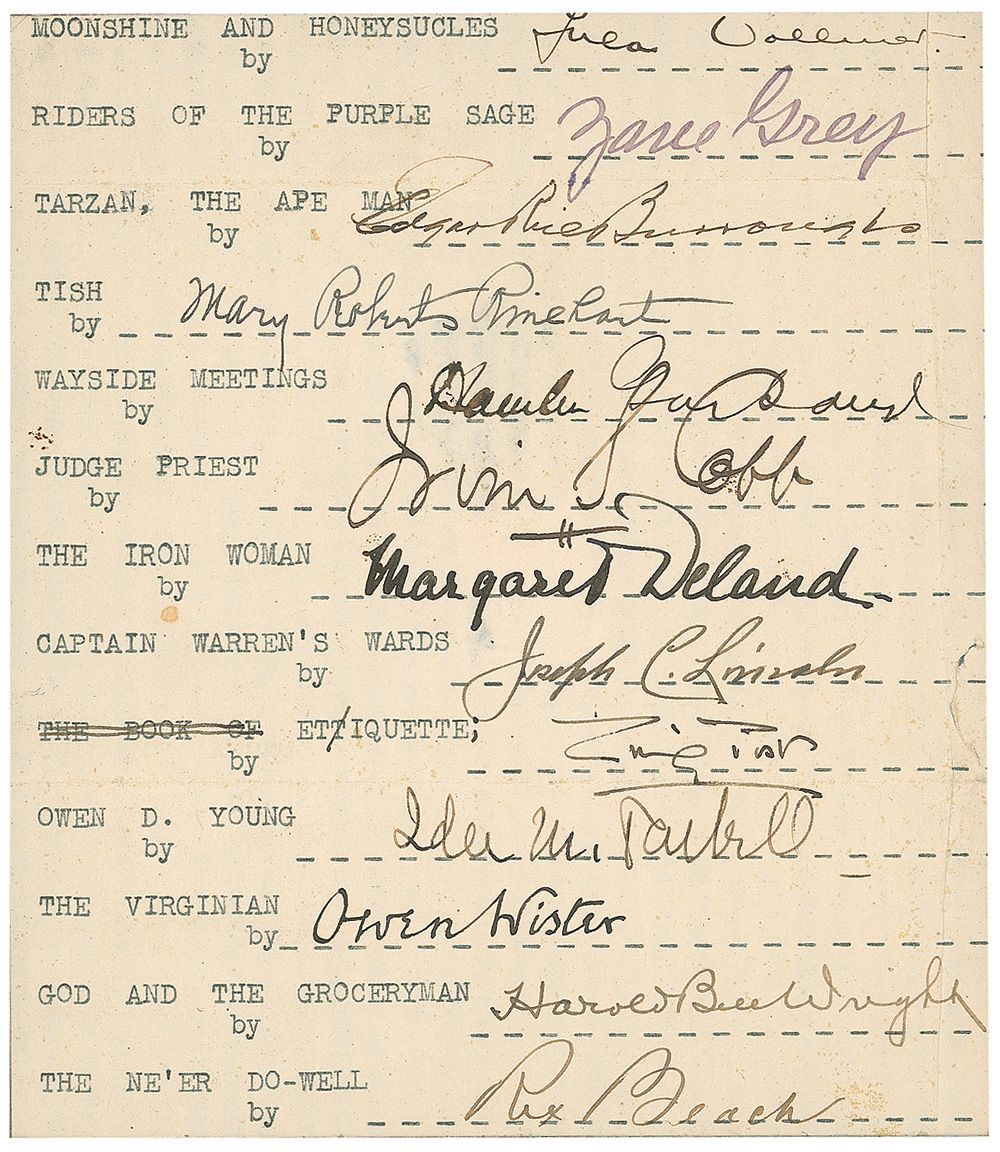 MOONSHINE AND HONEYSUCLES Lula Vollmer.
by
RIDERS OF THE PURPLE SAGE Zane Grey
by
TARZAN, THE APE MAN Edgar Rice Burroughs
by
TISH
by Mary Roberts Rinehart
WAYSIDE MEETINGS Hamlin Garland
by
JUDGE PRIEST Irvin S. Cobb
by
THE IRON WOMAN Margaret Deland
by
CAPTAIN WARREN'S WARDS Joseph C. Lincoln
by
THE BOOK OF ETTIQUETTE; Emily Post
by
OWEN D. YOUNG Ida M. Tarbell
by
THE VIRGINIAN Owen Wister
by
GOD AND THE GROCERYMAN Harold Bell Wright
by
THE NE'ER DO-WELL Rex Beach
by